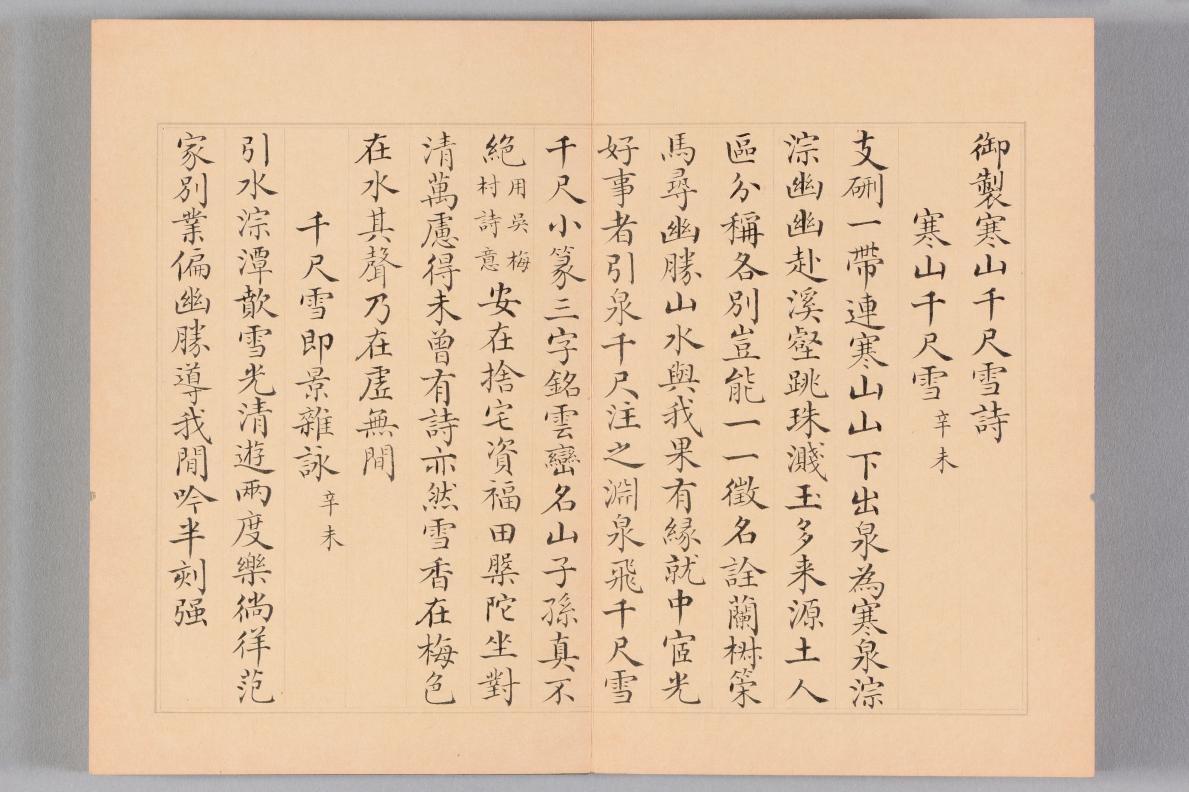 御製寒山千尺雪詩
寒山千尺雪 辛未
支硎一帶連寒山山下出泉為寒泉淙
淙幽幽赴溪壑跳珠濺玉多来源土人
區分稱各別豈能一一徵名詮蘭椒策
馬尋幽勝山水與我果有縁就中宧光
好事者引泉千尺注之淵泉飛千尺雪
千尺小篆三字銘雲巒名山子孫真不
絕用吳梅村詩意安在捨宅資福田槃陀坐對
清萬慮得未曾有詩亦然雪香在梅色
在水其聲乃在虛無間
千尺雪即景雜詠 辛未
引水淙潭歕雪光清遊兩度樂徜徉范
家別業偏幽勝導我閒吟半刻强